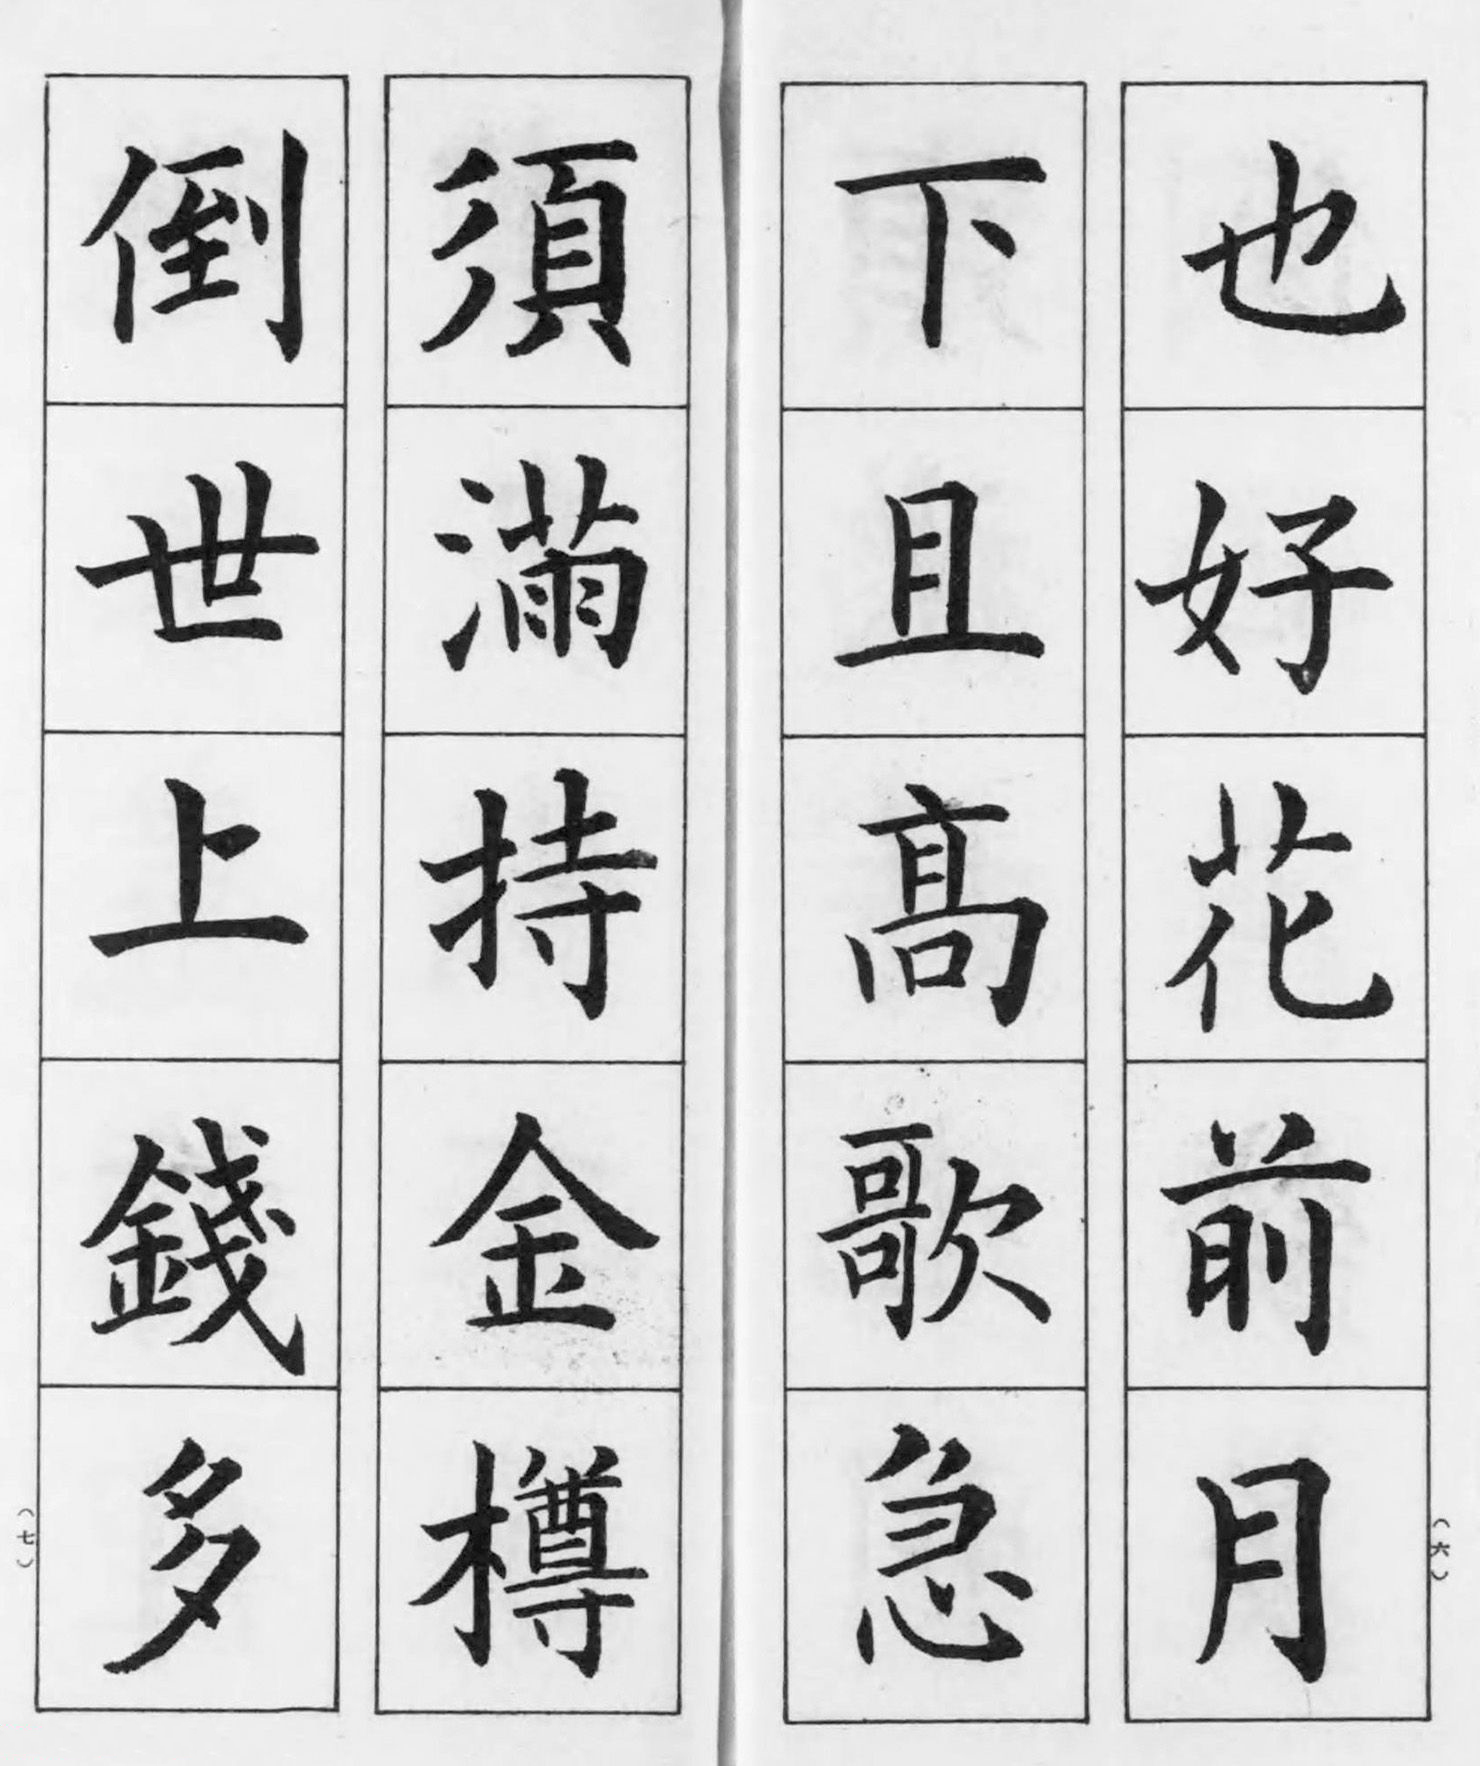 也好花前月
下且高歌急
須滿持金樽
倒世上錢多
（六）
（七）